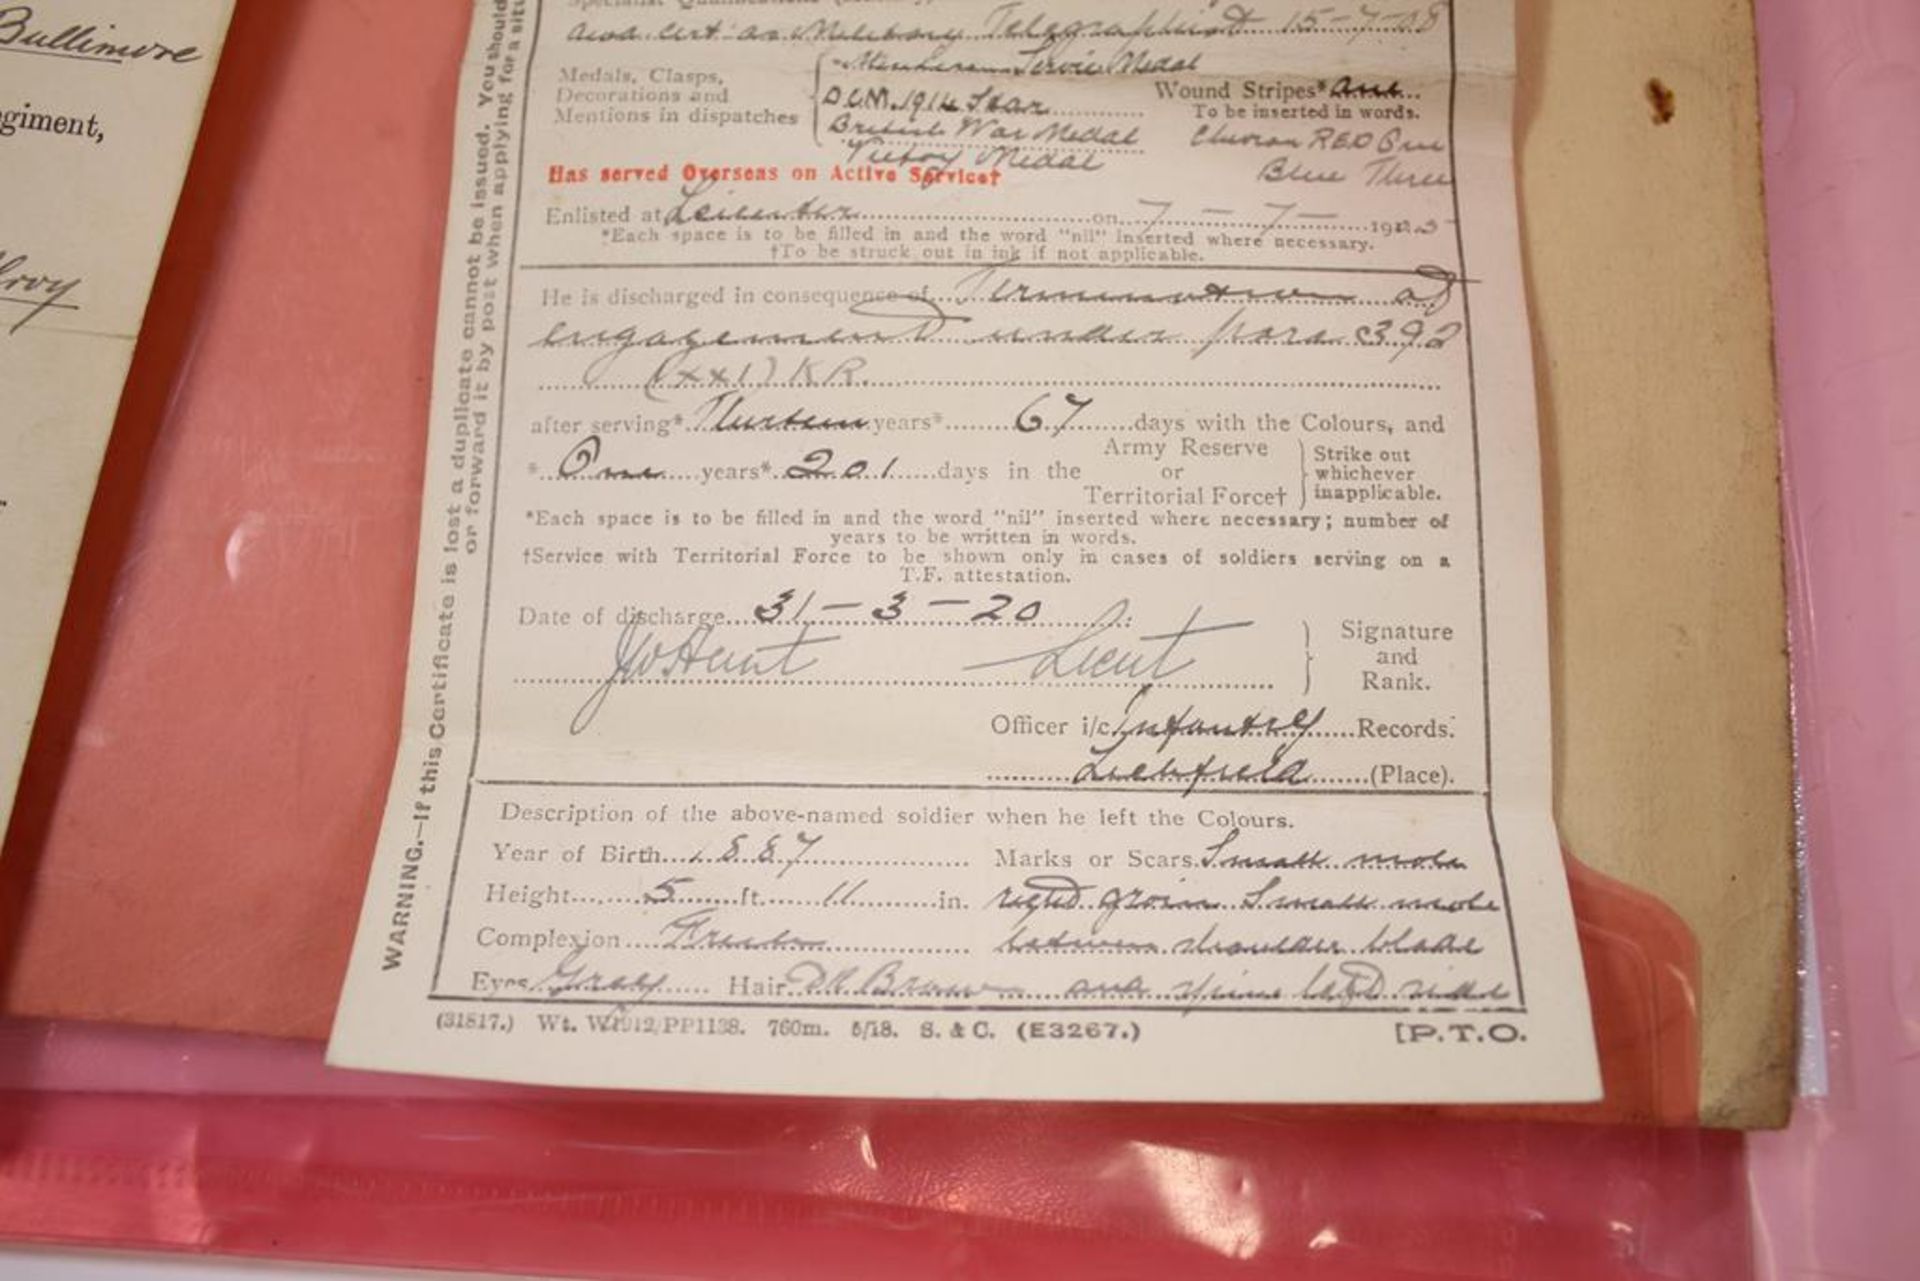 Bullimore
egiment,
WARNING.—If this Certificate is lost a duplicate cannot be issued. You should
or forward it by post when applying for a situ
Specialist Qualifications
cert as Military Telegraphist 15-7-08
Medals, Clasps,
Decorations and
Mentions in dispatches
Service Medal
DCM. 1914 Star
British War Medal
Victory Medal
Wound Stripes*
To be inserted in words.
Chevron RED One
Blue Three
Has served Overseas on Active Service†
Enlisted at Leicester on 7-7-19
*Each space is to be filled in and the word "nil" inserted where necessary.
†To be struck out in ink if not applicable.
He is discharged in consequence of Termination of
engagement under para 392
(XXI) KR.
after serving* Thirteen years* 67 days with the Colours, and
* One years* 201 days in the Army Reserve or Territorial Force† Strike out whichever inapplicable.
*Each space is to be filled in and the word "nil" inserted where necessary; number of
years to be written in words.
†Service with Territorial Force to be shown only in cases of soldiers serving on a
T.F. attestation.
Date of discharge 31-3-20
Hunt Lieut Signature and Rank.
Officer i/c Infantry Records.
Lichfield (Place).
Description of the above-named soldier when he left the Colours.
Year of Birth 1887 Marks or Scars Small mole
Height 5 ft. 11 in. right groin Small mole
Complexion Fresh between shoulder blade
Eyes Grey Hair Dk Brown and spine left side
(31817.) Wt. W1912/PP1138. 760m. 5/18. S. & C. (E3267.) [P.T.O.